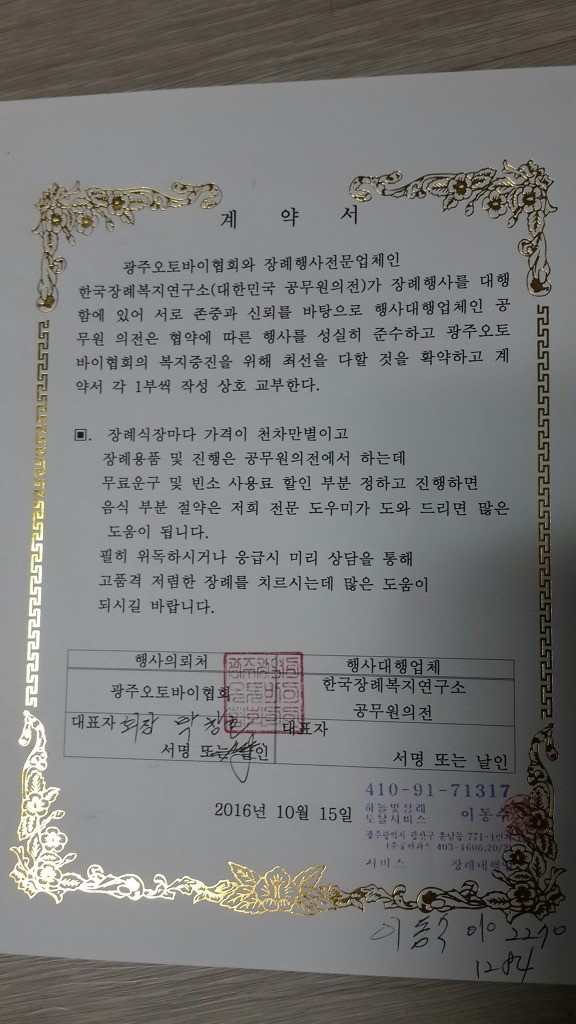 계 약 서
광주오토바이협회와 장례행사전문업체인
한국장례복지연구소(대한민국 공무원의전)가 장례행사를 대행
함에 있어 서로 존중과 신뢰를 바탕으로 행사대행업체인 공
무원 의전은 협약에 따른 행사를 성실히 준수하고 광주오토
바이협회의 복지증진을 위해 최선을 다할 것을 확약하고 계
약서 각 1부씩 작성 상호 교부한다.
▣. 장례식장마다 가격이 천차만별이고
장례용품 및 진행은 공무원의전에서 하는데
무료운구 및 빈소 사용료 할인 부분 정하고 진행하면
음식 부분 절약은 저희 전문 도우미가 도와 드리면 많은
도움이 됩니다.
필히 위독하시거나 응급시 미리 상담을 통해
고품격 저렴한 장례를 치르시는데 많은 도움이
되시길 바랍니다.
행사의뢰처 행사대행업체
광주오토바이협회 한국장례복지연구소
공무원의전
대표자 회장 박창 대표자
서명 또는 날인 서명 또는 날인
2016년 10월 15일
410-91-71317
하늘빛상례
토탈서비스 이동수
광주광역시 광산구 운남동 771-1번지
403-1606,20/2
서비스 장례대행
이동수 010 2270
1284